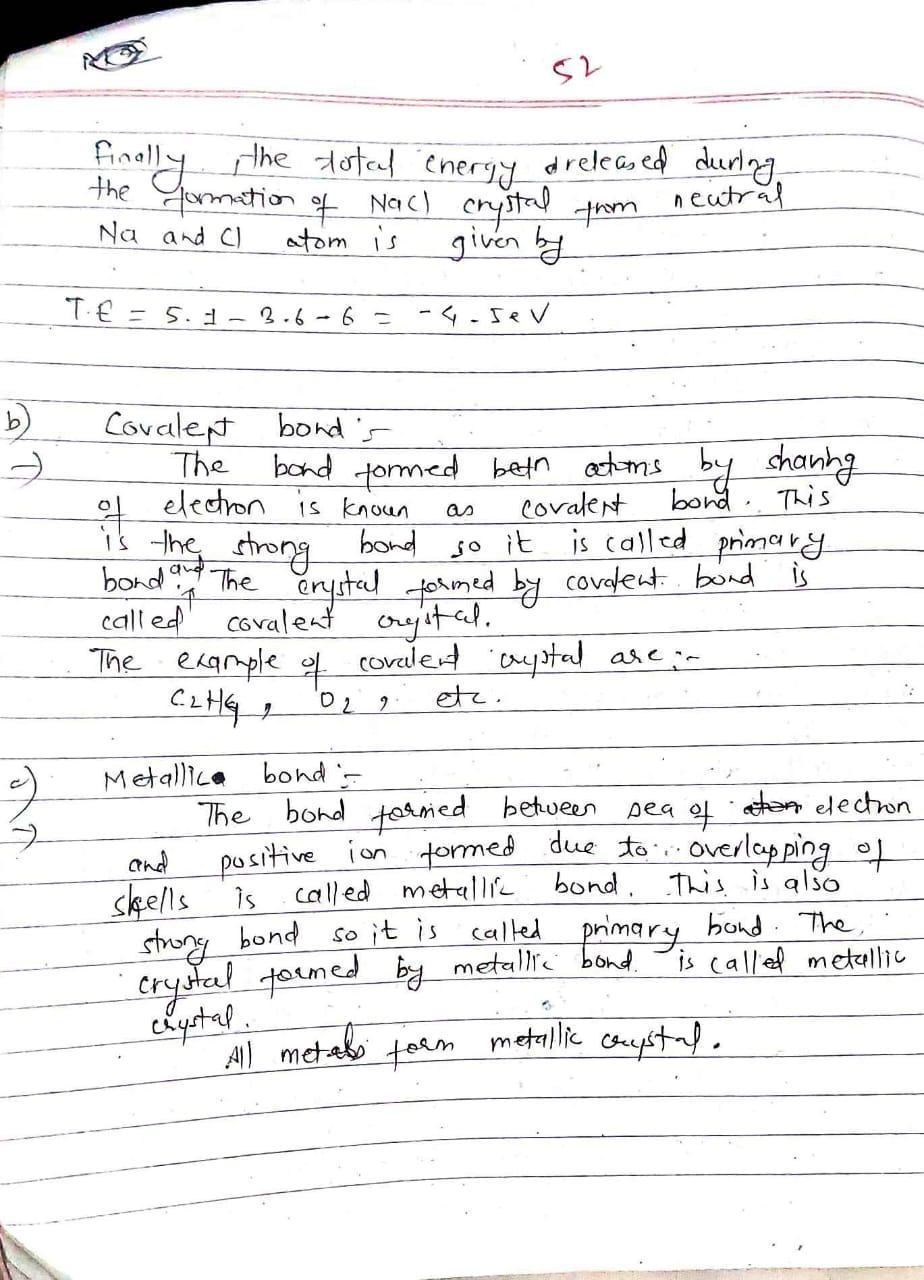 52
Finally, the total energy released during
the formation of NaCl crystal from neutral
Na and Cl atom is given by
T.E = 5.1 - 3.6 - 6 = -4.5eV
b) Covalent bond :-
→ The bond formed betn atoms by sharing
of electron is known as covalent bond. This
is the strong bond so it is called primary
bond and The crystal formed by covalent bond is
called covalent crystal.
The example of covalent crystal are :-
C2H4, O2, etc.
c) Metallic bond :-
→ The bond formed between sea of electron
and positive ion formed due to overlapping of
shells is called metallic bond. This is also
strong bond so it is called primary bond. The
crystal formed by metallic bond is called metallic
crystal.
All metals form metallic crystal.